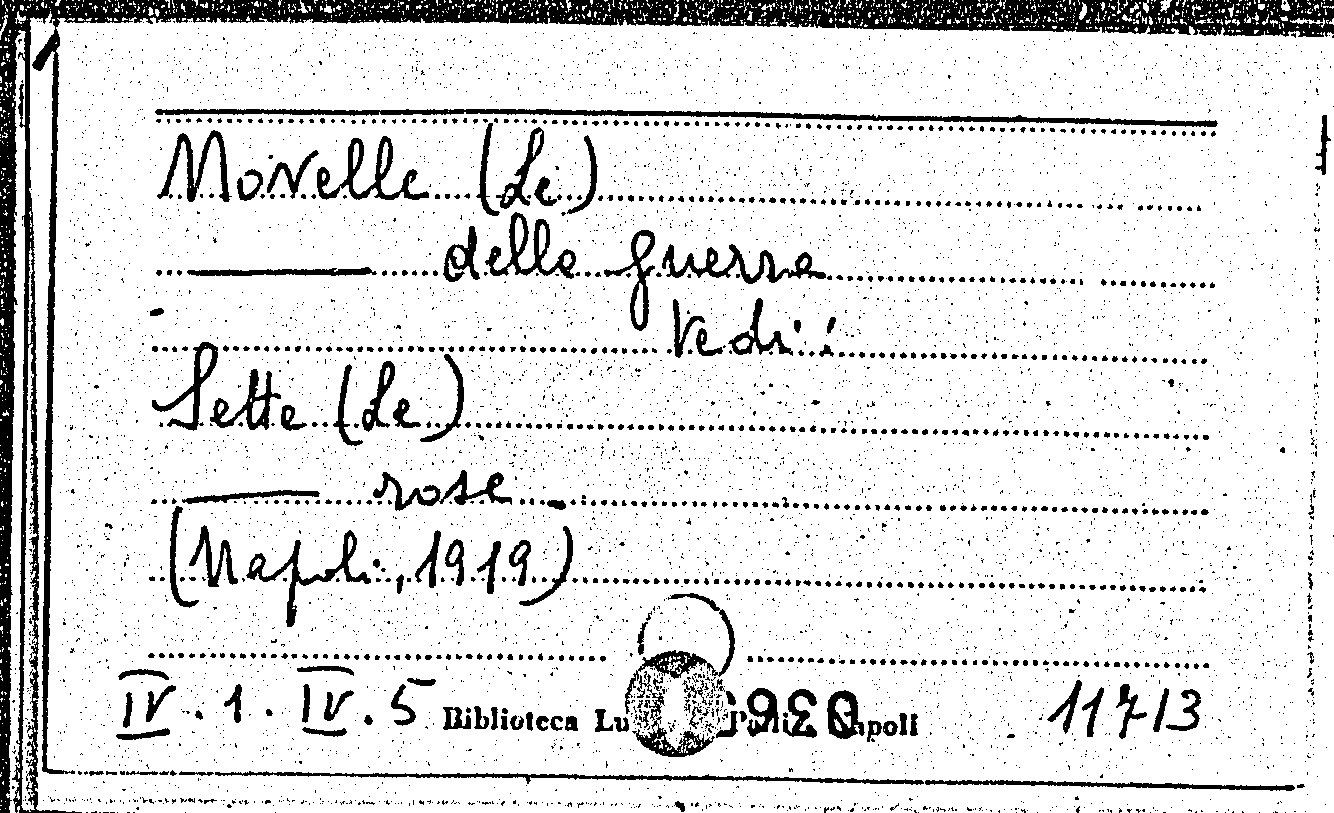 Novelle (Le)
della guerra
Vedi:
Sette (Le)
rose
(Napoli, 1919)
IV.1.IV.5 Biblioteca 11713